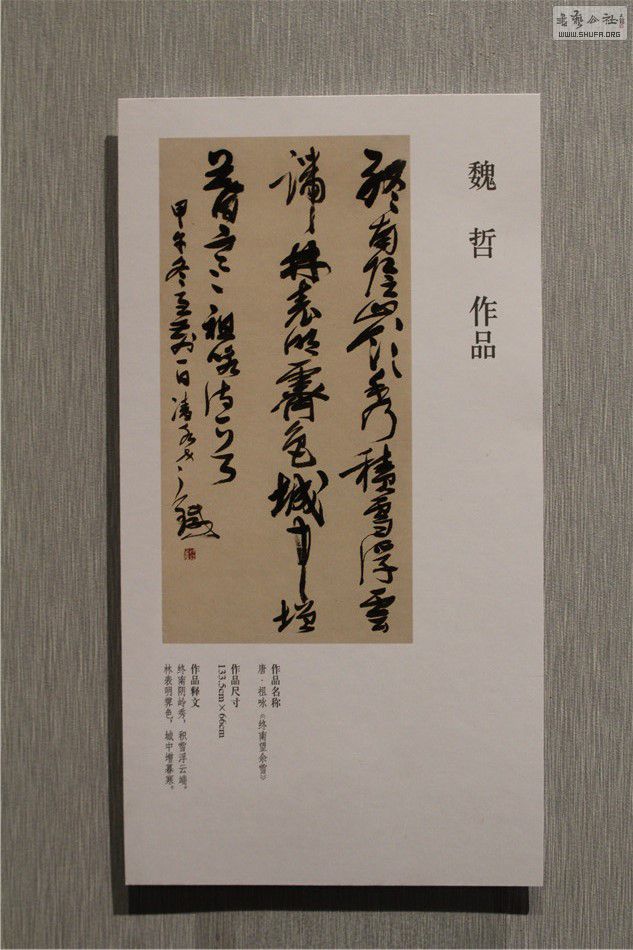 書藝公社
WWW.SHUFA.ORG
魏哲作品
終南陰嶺秀積雪浮雲
端林表明霽色城中增
暮寒祖詠詩一首
甲午冬至前一日
作品名称
唐·祖咏《终南望余雪》
作品尺寸
133.5cm×66cm
作品释文
终南阴岭秀，积雪浮云端。
林表明霁色，城中增暮寒。